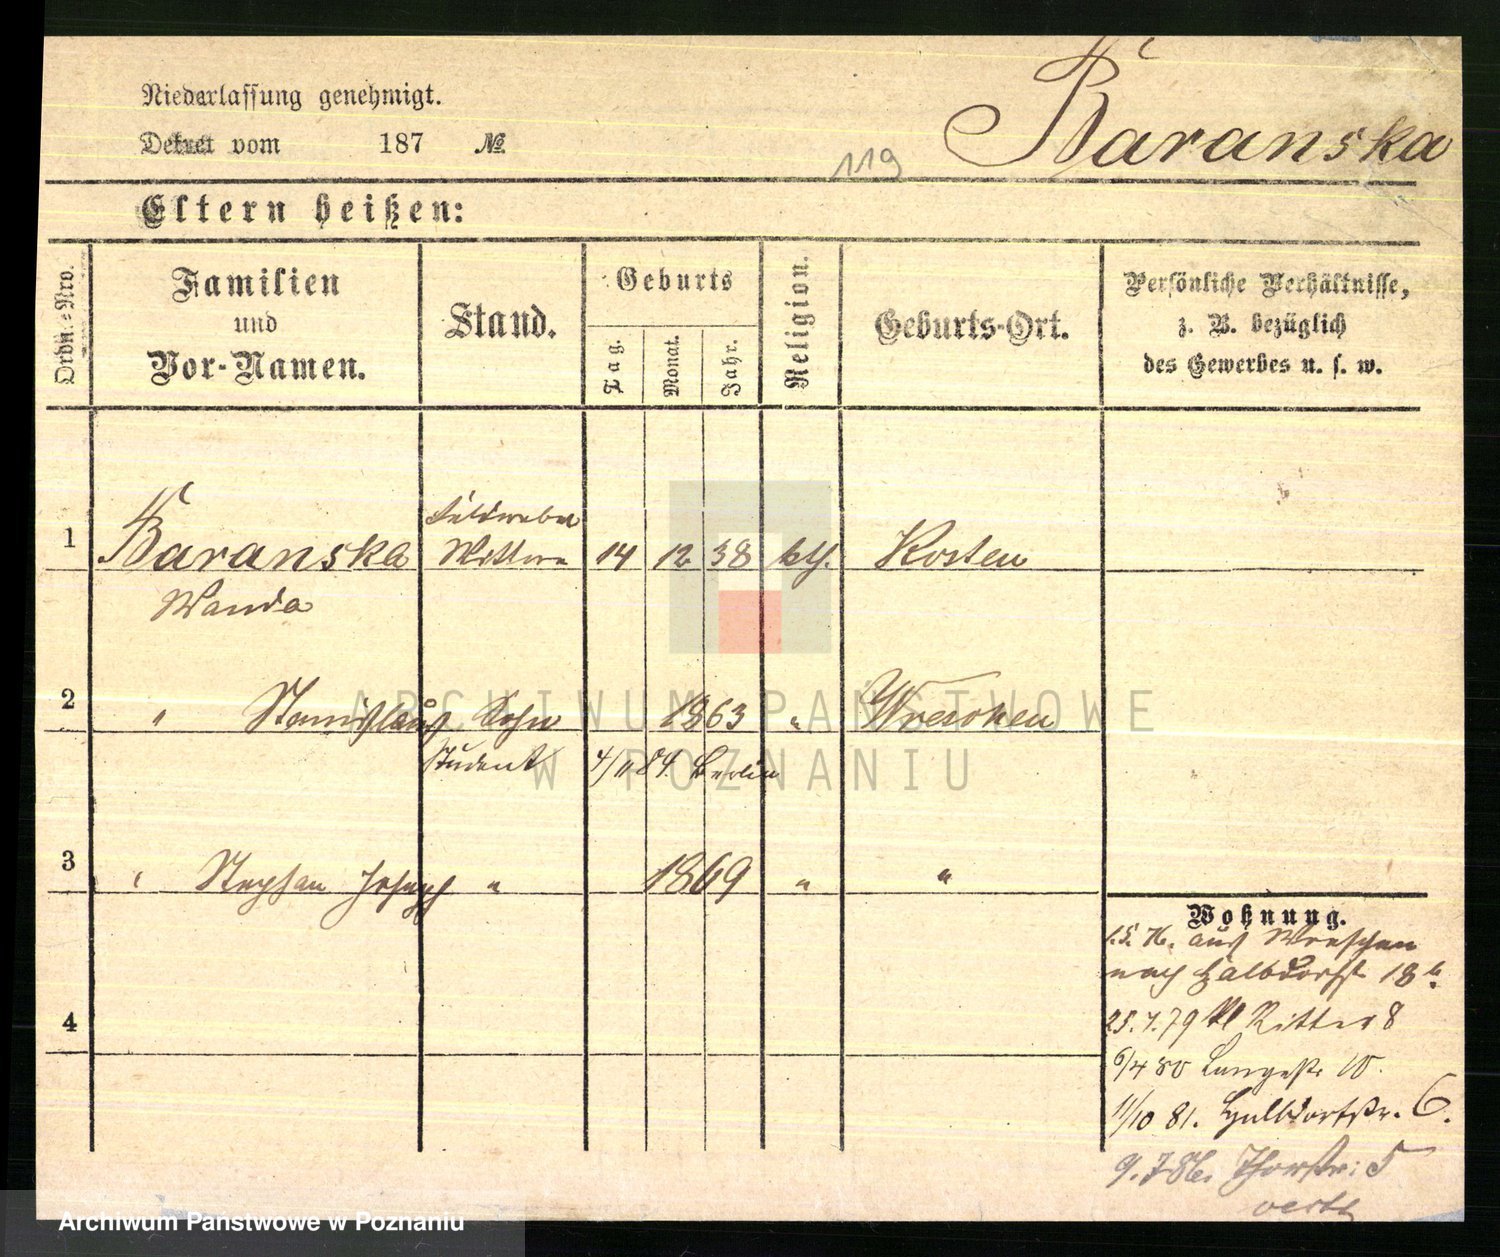 Niederlassung genehmigt.
Dekret vom 187 №
Baranska
119
Eltern heißen:
Ordn.-Nro.
Familien
und
Vor-Namen.
Stand.
Geburts
Tag.
Monat.
Jahr.
Religion.
Geburts-Ort.
Persönliche Verhältnisse,
z. B. bezüglich
des Gewerbes u. s. w.
Feldwebel
1 Baranska Wittwe 14 12 38 kth. Kosten
Wanda
2 " Stanislaus Sohn 1863 " Wreschen
Student 4/11 84. Berlin
3 " Stephan Joseph " 1869 " "
4
Wohnung.
1.5. 76. aus Wreschen
nach Halbdorfst 18 b.
25.7.79 kl Ritter 8
6/4 80 Langestr 10.
11/10 81. Halbdorfstr. 6.
9. 7 86. Thorstr: 5
ARCHIWUM PAŃSTWOWE
W POZNANIU
Archiwum Państwowe w Poznaniu